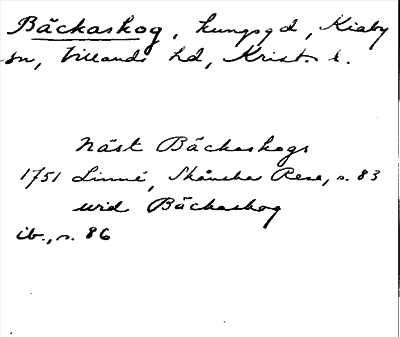 Bäckaskog, kungsgd, Kiaby
sn, Villands hd, Krist. l.
näst Bäckaskogs
1751 Linné, Skånska Resa, s. 83
wid Bäckaskog
ib., s. 86